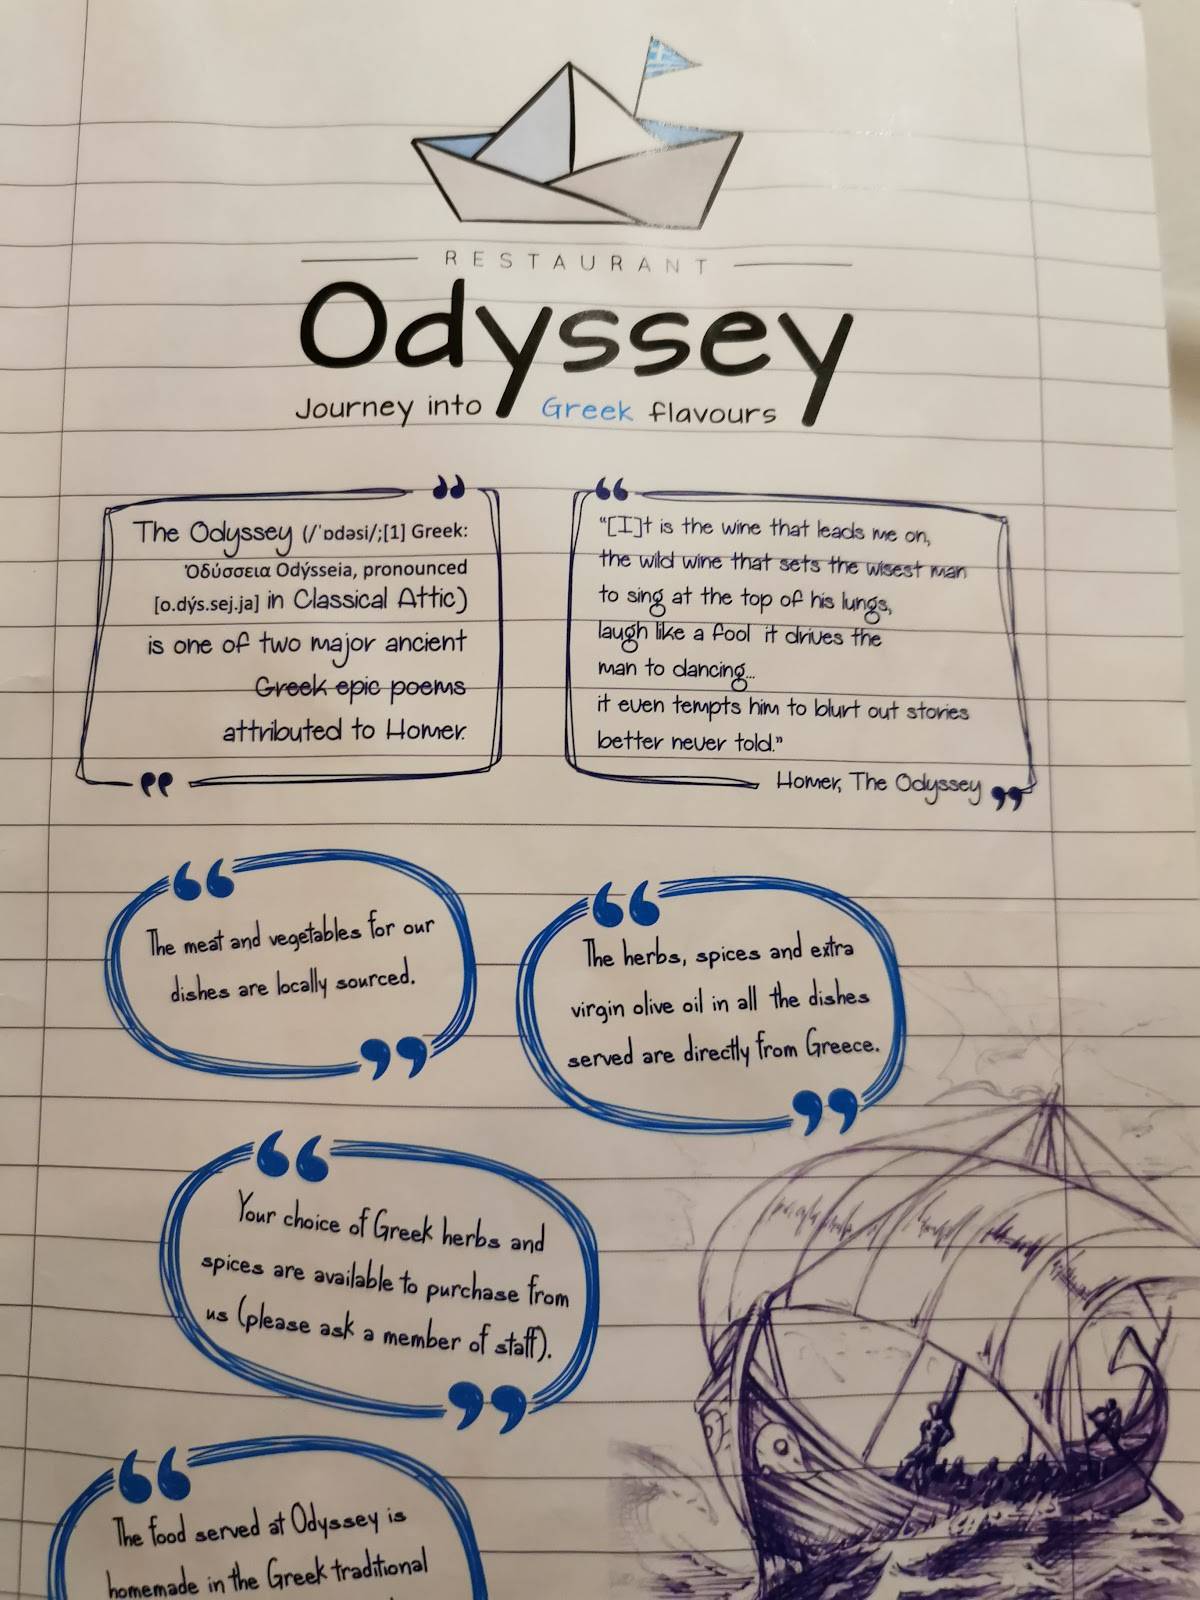 RESTAURANT
Odyssey
Journey into Greek flavours
The Odyssey (/ˈɒdəsi/;[1] Greek:
Ὀδύσσεια Odýsseia, pronounced
[o.dýs.sej.ja] in Classical Attic)
is one of two major ancient
Greek epic poems
attributed to Homer.
"[I]t is the wine that leads me on,
the wild wine that sets the wisest man
to sing at the top of his lungs,
laugh like a fool it drives the
man to dancing...
it even tempts him to blurt out stories
better never told."
Homer, The Odyssey
The meat and vegetables for our
dishes are locally sourced.
The herbs, spices and extra
virgin olive oil in all the dishes
served are directly from Greece.
Your choice of Greek herbs and
spices are available to purchase from
us (please ask a member of staff).
The food served at Odyssey is
homemade in the Greek traditional